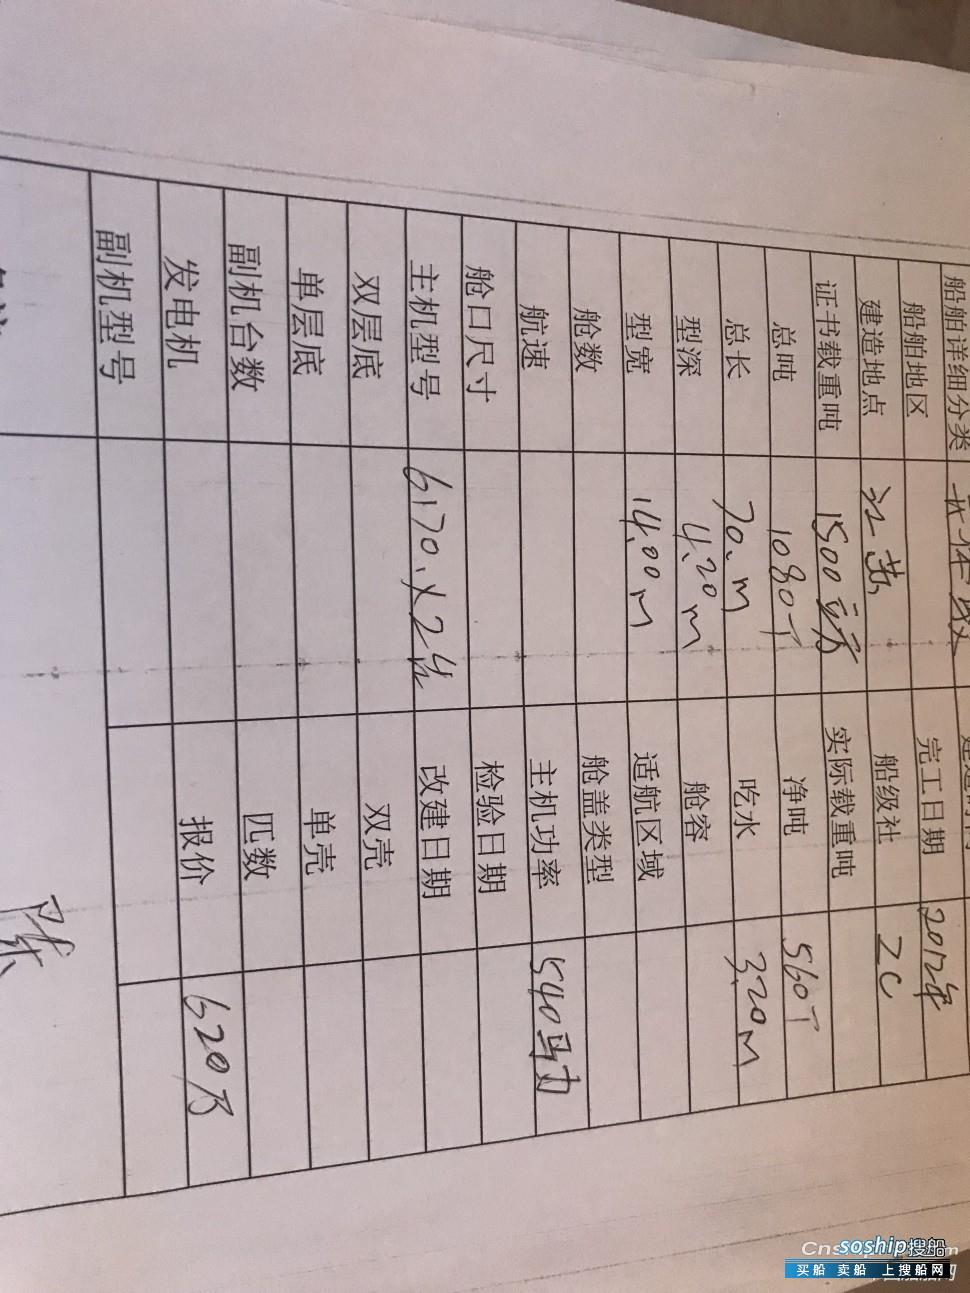 船舶详细分类
船舶地区 完工日期 2012年
建造地点 江苏 船级社 ZC
证书载重吨 1500 实际载重吨
总吨 1080T 净吨 560T
总长 70.m 吃水 3.20M
型深 4.20m 舱容
型宽 14.00m 适航区域
舱数 舱盖类型
航速 主机功率 540马力
舱口尺寸 检验日期
主机型号 6170.X2台 改建日期
双层底 双壳
单层底 单壳
副机台数 匹数
发电机 报价 620万
副机型号
soship搜船
买船 卖船 上搜船网